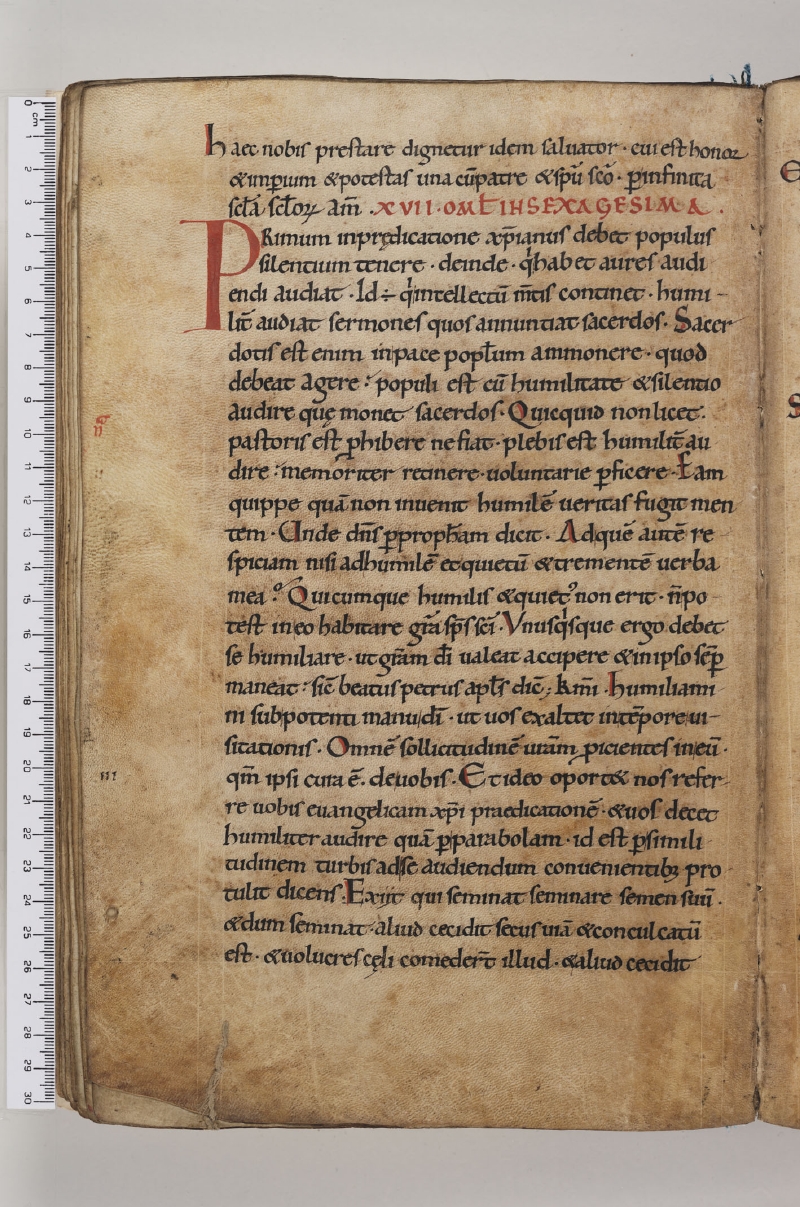 haec nobis prestare dignetur idem saluator · cui est honor
& imperium & potestas una cū patre & spū sc̄o · p infinita
sc̄la sc̄loꝝ am̄ . XVII · OML̄ IN SEXAGESIMA .
PRimum in predicatione xp̄ianus debet populus
silentium tenere · deinde · q habet aures audi
endi audiat · Id ÷ q intellectū m̄tis continet · humi-
lit̄ audiat sermones quos annuntiat sacerdos · Sacer
dotis est enim in pace popłum ammonere · quod
debeat agere : populi est cū humilitate & silentio
audire quę monet sacerdos · Quicquid non licet ·
pastoris est ꝓhibere ne fiat · plebis est humilit̄ au
dire : memoriter retinere · uoluntarie ꝑficere · Eam
quippe quā non inuenit humilē ueritas fugit men
tem · Unde dn̄s ꝑ propham dicit · Ad quē autē re
spiciam nisi ad humilē et quietū & trementē uerba
mea · Quicumque humilis & quiet᾽ non erit · n̄ po
test in eo habitare gr̄a sp̄s sc̄i · Vnusqsque ergo debet
se humiliare · ut gr̄am dī ualeat accipere & in ipso sēp
maneat : sic̄ beatus petrus apl̄s dic̄; km̄i · humiliami
ni sub potenti manu dī · ut uos exaltet in tēpore ui-
sitationis · Omnē sollicitudinē ur̄am proicientes in eū ·
qm̄ ipsi cura ē · de uobis · Et ideo oport& nos refer
re uobis euangelicam xp̄i praedicationē · & uos decet
humiliter audire quā ꝑ parabolam · id est ꝑ simili
tudinem turbis ad se audiendum conuenientibꝫ pro
tulit dicens · Exiit qui seminat seminare semen suū ·
& dum seminat · aliud cecidit secus uiā & conculcatū
est · & uolucres cęli comeder̄t illud · & aliud cecidit